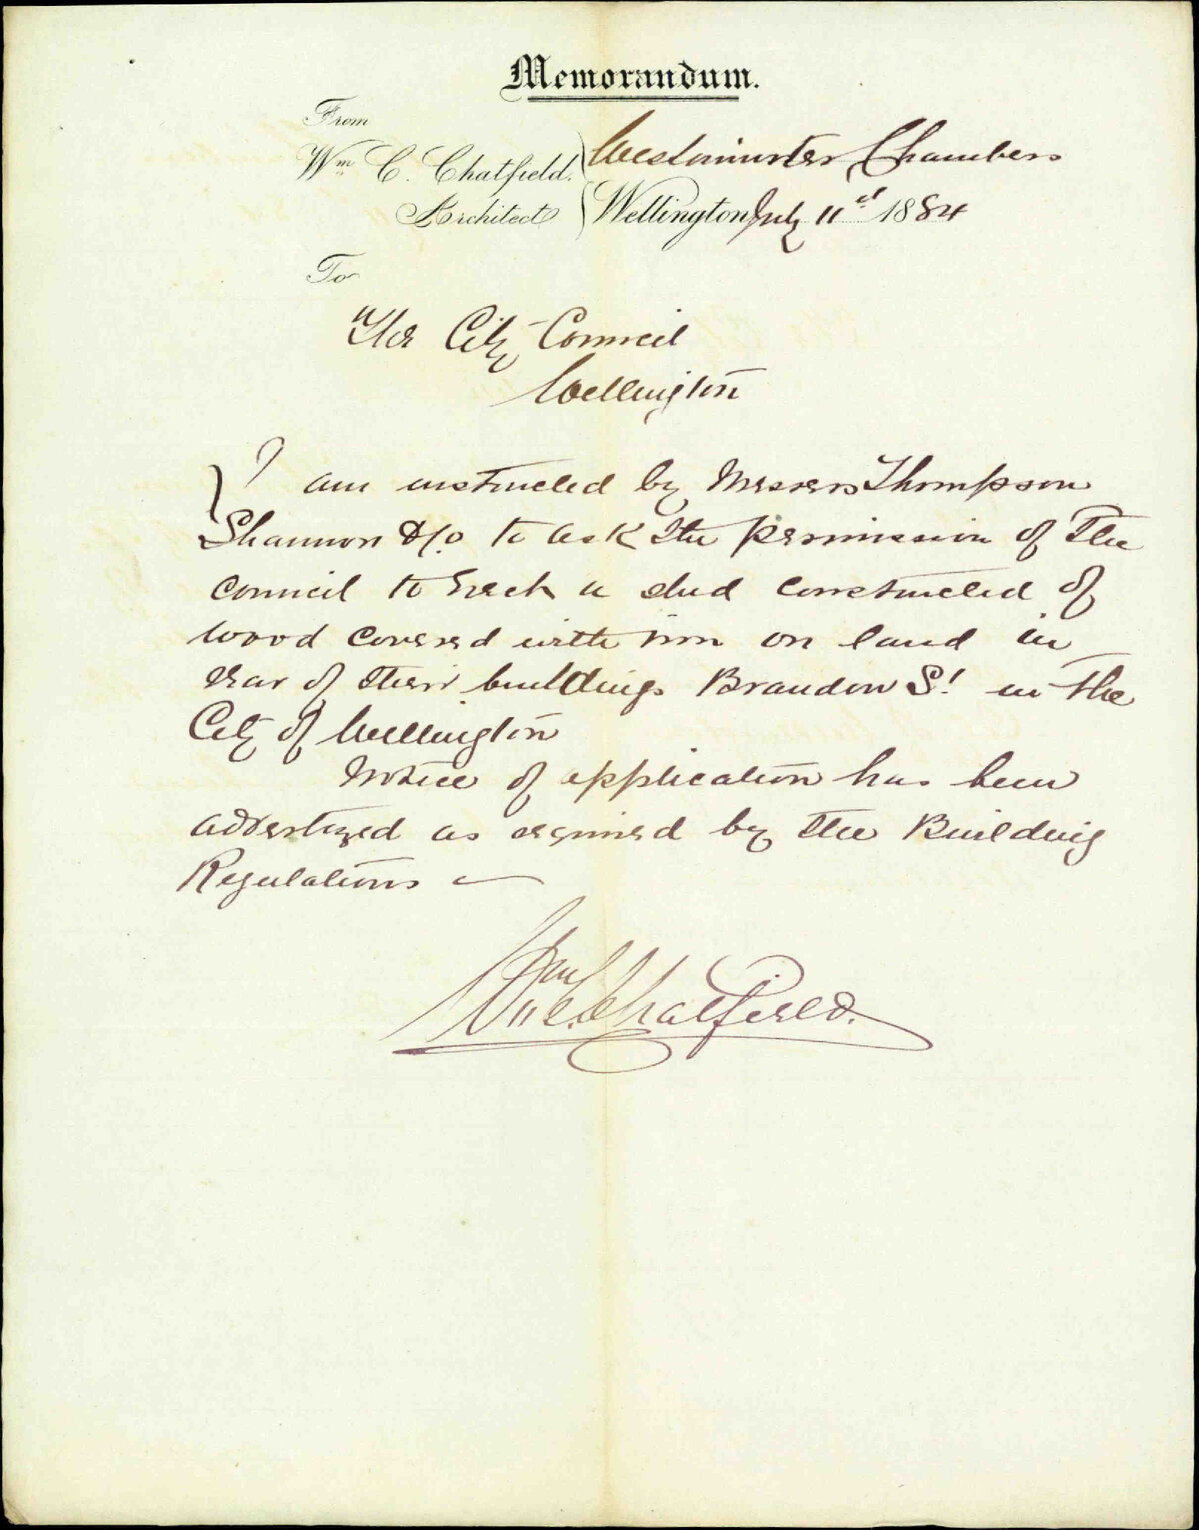 Memorandum.
From
Wm C. Chatfield.
Architect
Westminster Chambers
Wellington July 11st 1884
To
The City Council
Wellington
I am instructed by Messers Thompson
Shannon & Co to ask the permission of The
council to Erect a shed constructed of
wood covered with iron on land in
rear of their buildings Brandon St in the
City of Wellington
Notice of application has been
advertized as required by the Building
Regulations
Wm C. Chatfield.